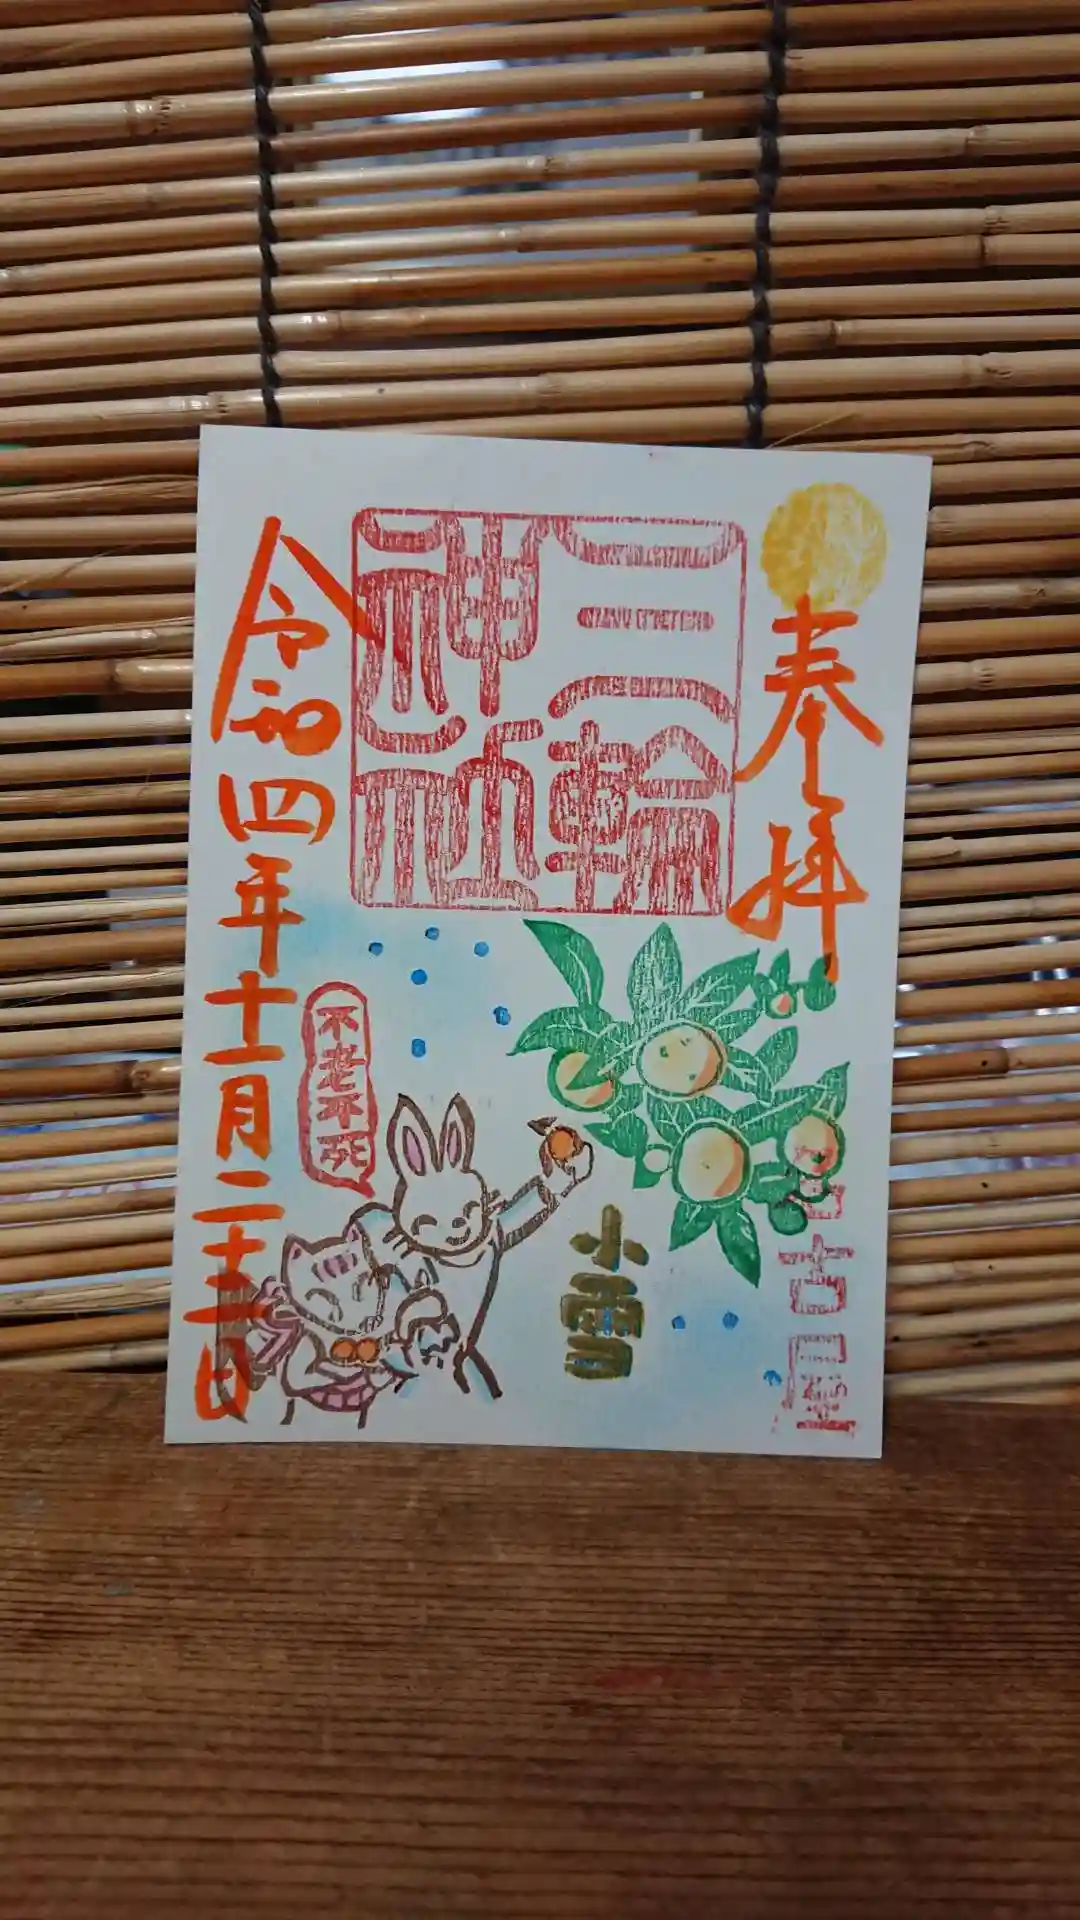 奉拝
名古屋
三輪
神社
小雪
不老不死
令和四年十一月二十二日